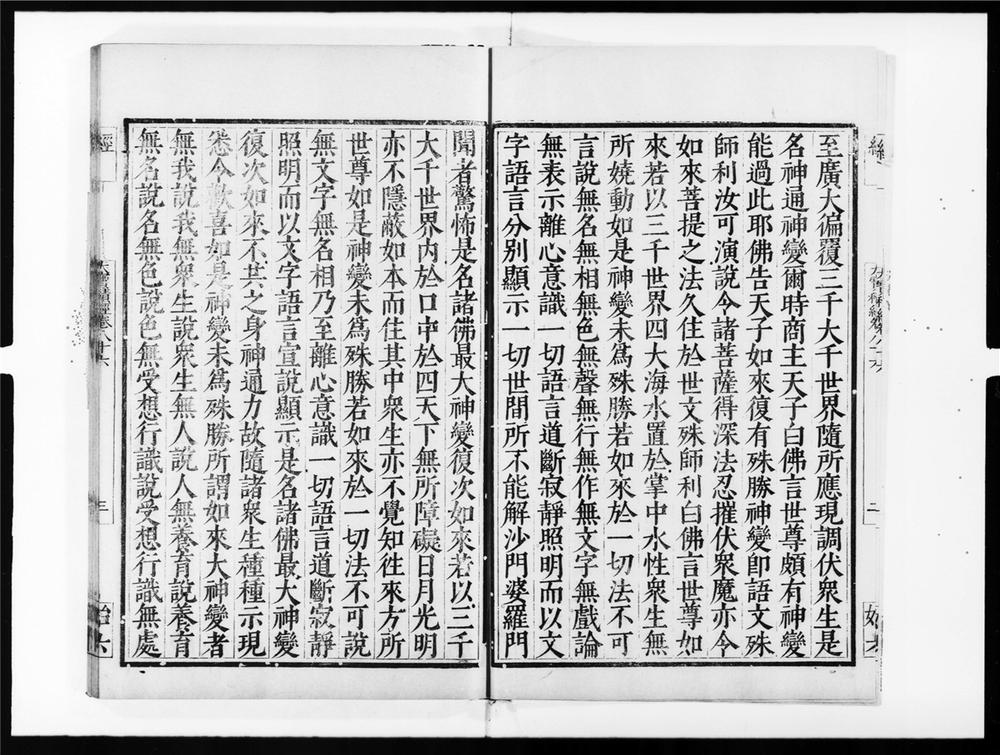 至廣大徧覆三千大千世界隨所應現調伏衆生是
名神通神變爾時商主天子白佛言世尊頗有神變
能過此耶佛告天子如來復有殊勝神變即語文殊
師利汝可演說令諸菩薩得深法忍摧伏衆魔亦令
如來菩提之法久住於世文殊師利白佛言世尊如
來若以三千世界四大海水置於掌中水性衆生無
所嬈動如是神變未爲殊勝若如來於一切法不可
言說無名無相無色無聲無行無作無文字無戲論
無表示離心意識一切語言道斷寂靜照明而以文
字語言分别顯示一切世間所不能解沙門婆羅門
聞者驚怖是名諸佛最大神變復次如來若以三千
大千世界内於口中於四天下無所障礙日月光明
亦不隱蔽如本而住其中衆生亦不覺知徃來方所
世尊如是神變未爲殊勝若如來於一切法不可說
無文字無名相乃至離心意識一切語言道斷寂靜
照明而以文字語言宣說顯示是名諸佛最大神變
復次如來不共之身神通力故隨諸衆生種種示現
悉令歡喜如是神變未爲殊勝所謂如來大神變者
無我說我無衆生說衆生無人說人無養育說養育
無名說名無色說色無受想行識說受想行識無處
經
大寶積經卷八十六
三
始六